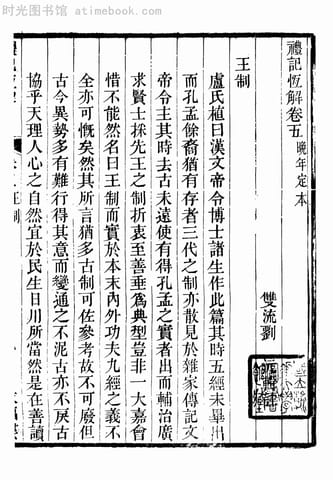 时光图书馆 atimebook.com
禮記恆解卷五 晚年定本
雙流劉
王制
盧氏植曰漢文帝令博士諸生作此篇其時五經未畢出
而孔孟餘裔猶有存者三代之制亦散見於雜家傳記文
帝令主其時去古未遠使有得孔孟之實者出而輔治廣
求賢士採先王之制折衷至善垂爲典型豈非一大嘉會
惜不能然名曰王制而實於本末內外功夫九經之義不
全亦可慨矣然其所言猶多古制可佐參考故不可廢但
古今異勢多有難行得其意而變通之不泥古亦不戾古
協乎天理人心之自然宜於民生日用所當然是在善讀
王制